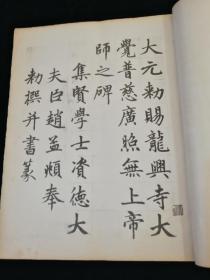 大元勅賜龍興寺大
覺普慈廣照無上帝
師之碑
集賢學士資德大
夫臣趙孟頫奉
勅撰并書篆